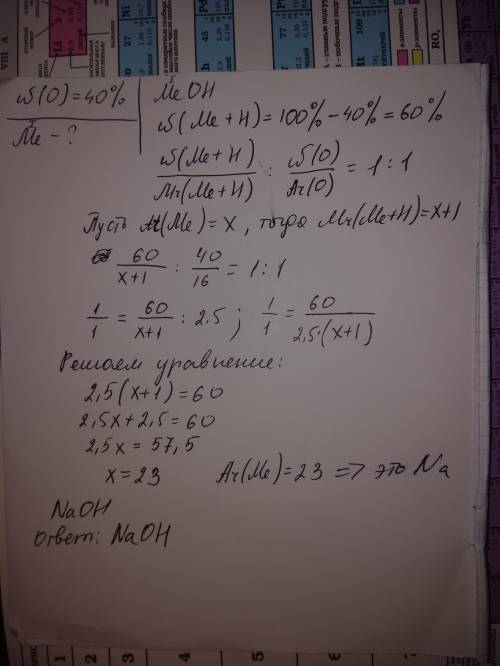 VIII A
Li 3
Ni
Pd
Rh 45
Ir 77
Pt
Mt 109
RO,
ω(O)=40%
Me - ?
I
MeOH
ω(Me+H)=100%-40%=60%
ω(Me+H)/Mr(Me+H) : ω(O)/Ar(O) = 1:1
Пусть Ar(Me)=x, тогда Mr(Me+H)=x+1
60/x+1 : 40/16 = 1:1
1/1 = 60/x+1 : 2,5 ; 1/1 = 60/2,5·(x+1)
Решаем уравнение:
2,5(x+1)=60
2,5x+2,5=60
2,5x=57,5
x=23 Ar(Me)=23 => это Na
NaOH
Ответ: NaOH
1 2 3 4 5 6 7